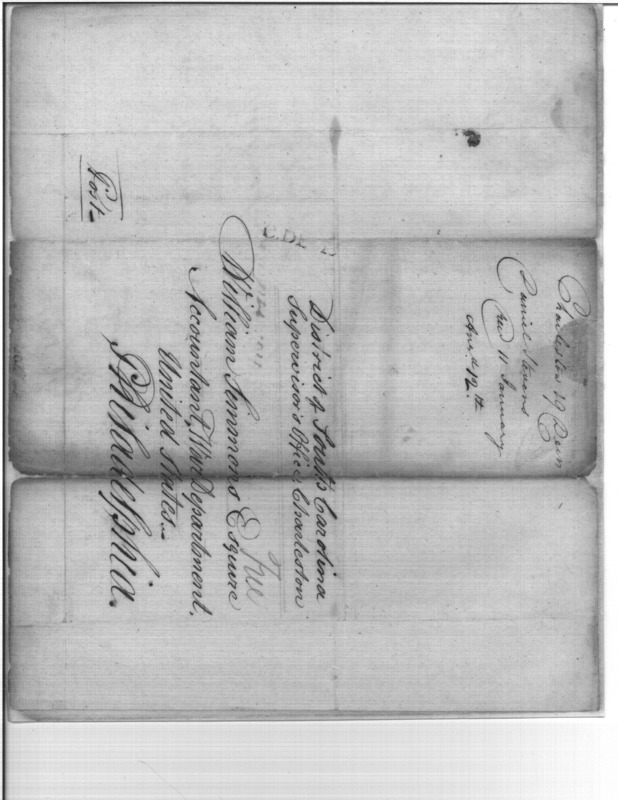 Charleston 29 Decem
Daniel Stevens
rec 11 January
Ans.d 12.th
District of South Carolina
Supervisor's Office, Charleston
Free
William Simmons Esquire
Accountant, War Department,
United States.
Philadelphia.
Post